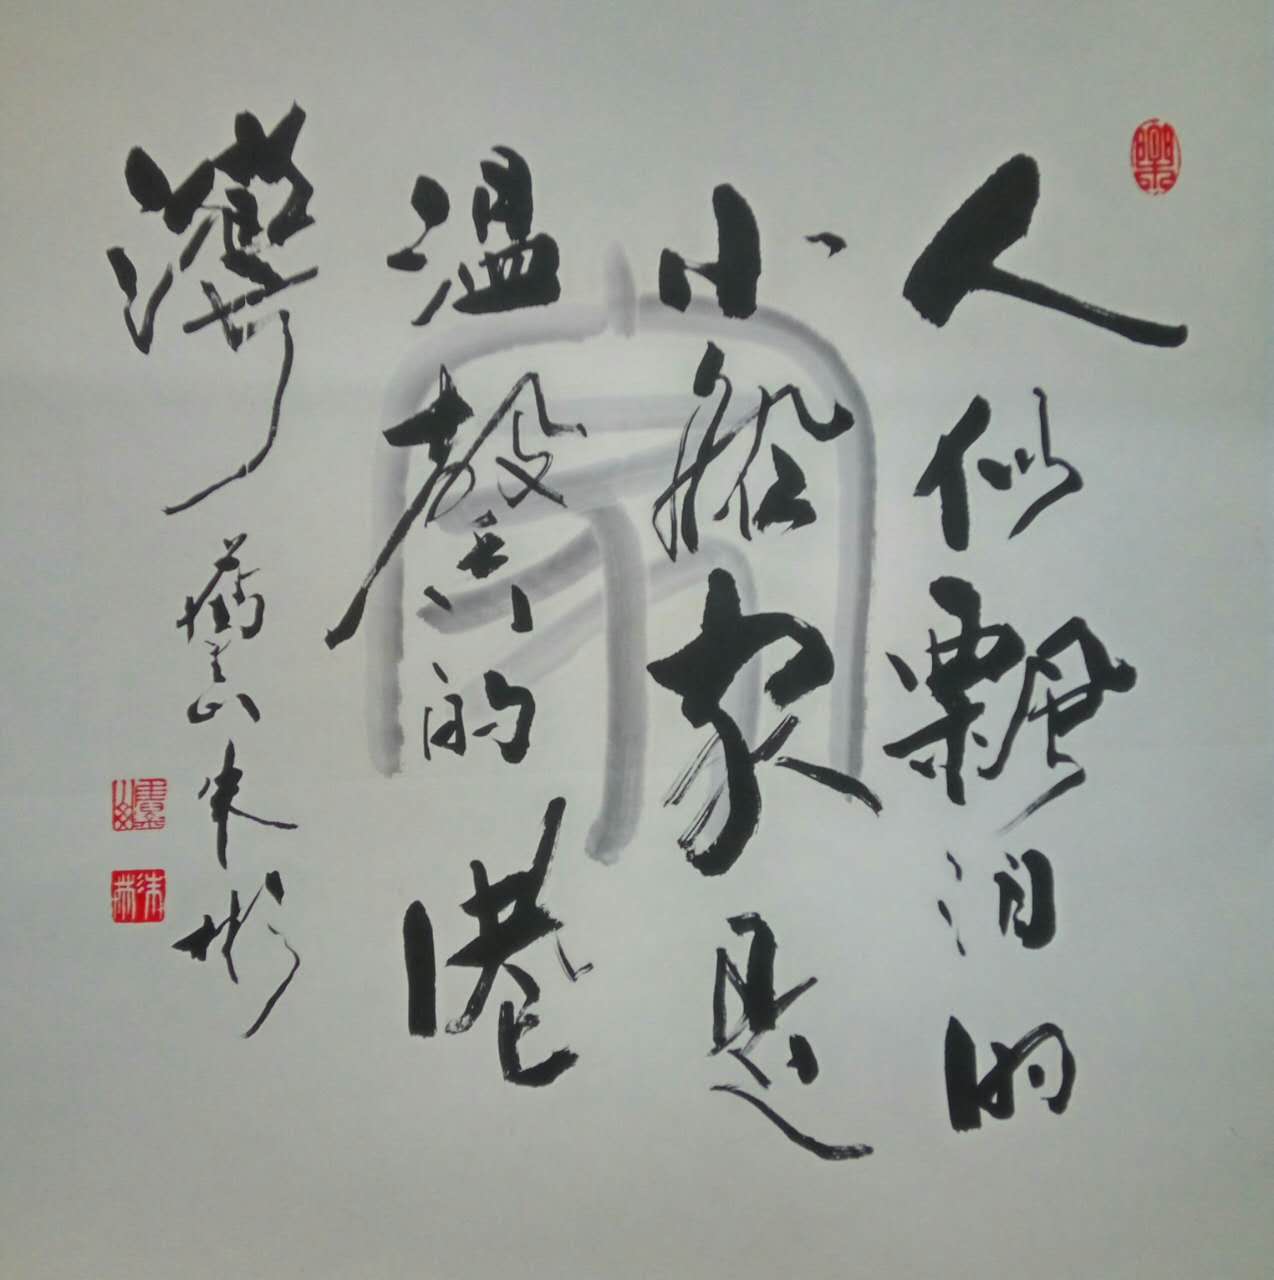 人似飘泊的
小船家是
温馨的港
湾
朱彬